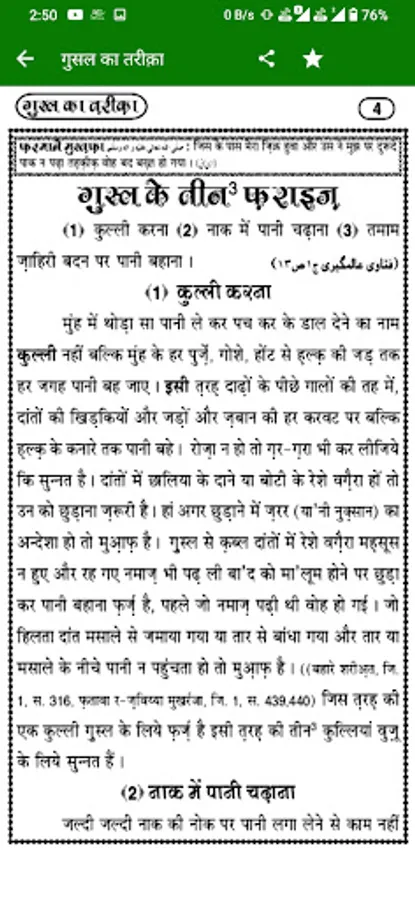 2:50
0 B/s
76%
गुसल का तरीक़ा
गुस्ल का तरीक़ा
4
फ़रमाने मुस्तफ़ा : जिस के पास मेरा ज़िक्र हुवा और उस ने मुझ पर दुरूदे
पाक न पढ़ा तहक़ीक़ वोह बद बख़्त हो गया ।
गुस्ल के तीन³ फ़राइज़
(1) कुल्ली करना (2) नाक में पानी चढ़ाना (3) तमाम
ज़ाहिरी बदन पर पानी बहाना । (فتاوى عالمگیری ج۱ ص۱۳)
(1) कुल्ली करना
मुंह में थोड़ा सा पानी ले कर पच कर के डाल देने का नाम
कुल्ली नहीं बल्कि मुंह के हर पुर्ज़े, गोशे, होंट से हल्क़ की जड़ तक
हर जगह पानी बह जाए । इसी तरह दाढ़ों के पीछे गालों की तह में,
दांतों की खिड़कियों और जड़ों और ज़बान की हर करवट पर बल्कि
हल्क़ के कनारे तक पानी बहे । रोज़ा न हो तो ग़र-ग़रा भी कर लीजिये
कि सुन्नत है । दांतों में छालिया के दाने या बोटी के रेशे वग़ैरा हों तो
उन को छुड़ाना ज़रूरी है । हां अगर छुड़ाने में ज़रर (या'नी नुक़्सान) का
अन्देशा हो तो मुआफ़ है । गुस्ल से क़ब्ल दांतों में रेशे वग़ैरा महसूस
न हुए और रह गए नमाज़ भी पढ़ ली बा'द को मा'लूम होने पर छुड़ा
कर पानी बहाना फ़र्ज़ है, पहले जो नमाज़ पढ़ी थी वोह हो गई । जो
हिलता दांत मसाले से जमाया गया या तार से बांधा गया और तार या
मसाले के नीचे पानी न पहुंचता हो तो मुआफ़ है । ((बहारे शरीअत, जि.
1, स. 316, फ़तावा र-ज़विय्या मुख़र्रजा, जि. 1, स. 439,440) जिस तरह की
एक कुल्ली गुस्ल के लिये फ़र्ज़ है इसी तरह की तीन³ कुल्लियां वुज़ू
के लिये सुन्नत हैं ।
(2) नाक में पानी चढ़ाना
जल्दी जल्दी नाक की नोक पर पानी लगा लेने से काम नहीं